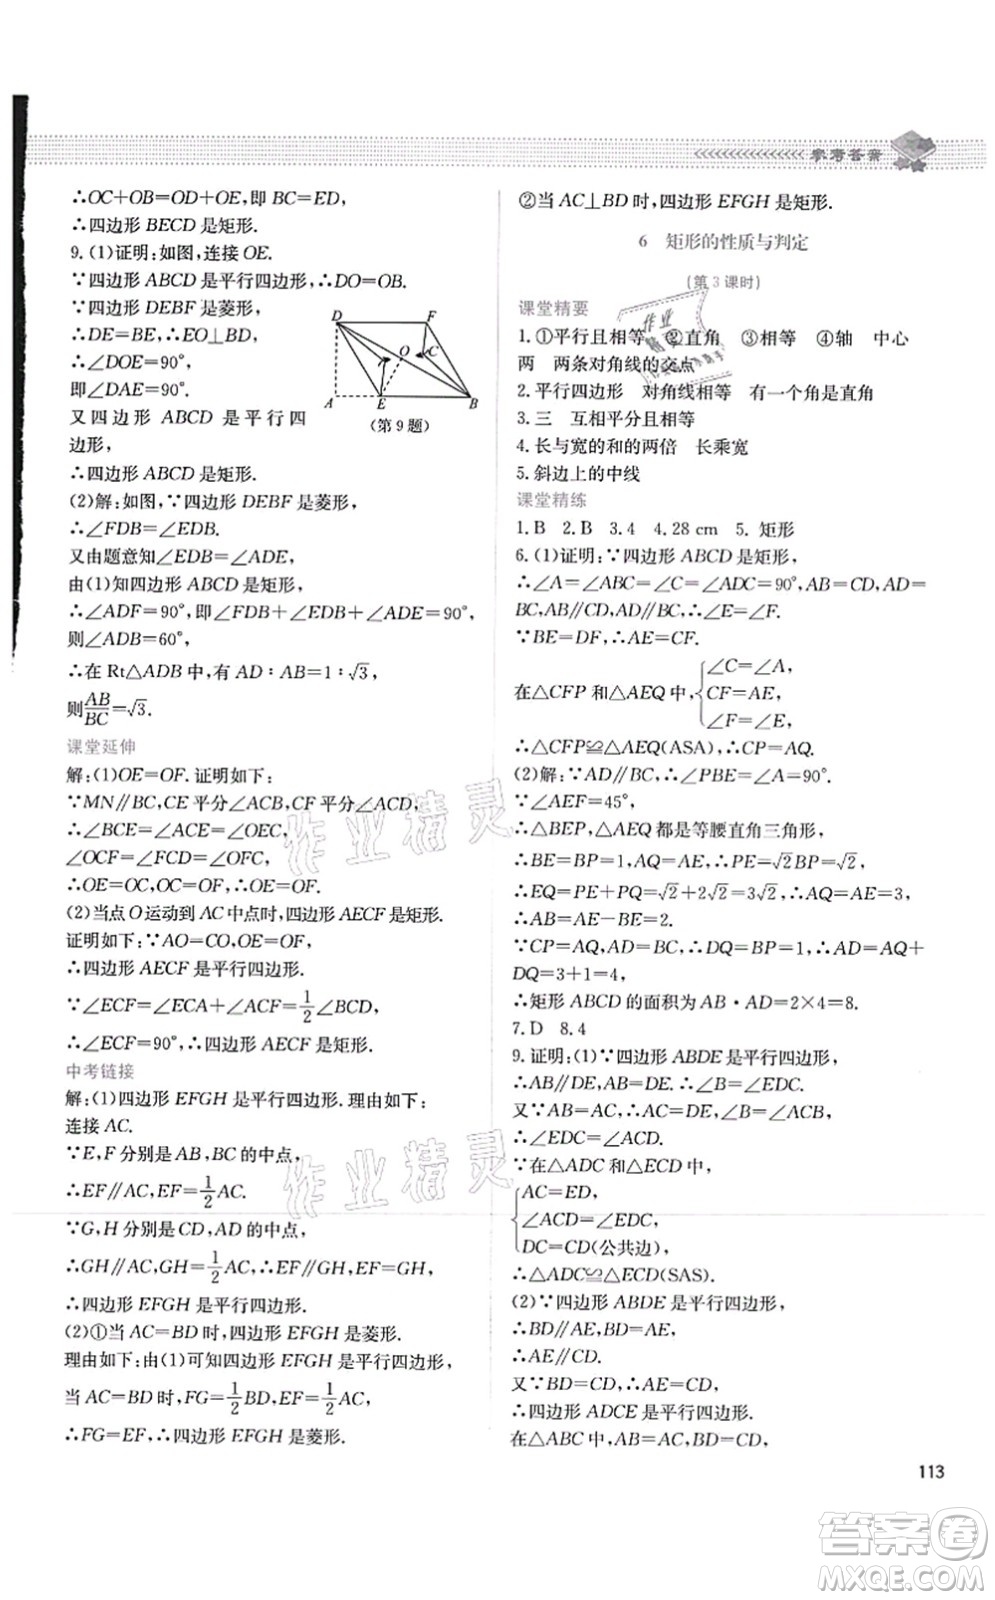 参考答案
∴OC+OB=OD+OE,即BC=ED,
∴四边形BECD是矩形.
9.(1)证明:如图,连接OE.
∵四边形ABCD是平行四边形,∴OD=OB.
∵四边形DEBF是菱形,
∴DE=BE,∴EO⊥BD.
∴∠DOE=90°,
即∠DAE=90°.
又四边形ABCD是平行四
边形,
∴四边形ABCD是矩形.
D F O C A E B
(第9题)
(2)解:如图,∵四边形DEBF是菱形,
∴∠FDB=∠EDB.
又由题意知∠EDB=∠ADE,
由(1)知四边形ABCD是矩形,
∴∠ADF=90°,即∠FDB+∠EDB+∠ADE=90°,
则∠ADB=60°,
∴在Rt△ADB中,有AD:AB=1:√3,
则AB/BC=√3.
课堂延伸
解:(1)OE=OF.证明如下:
∵MN∥BC,CE平分∠ACB,CF平分∠ACD,
∴∠BCE=∠ACE=∠OEC,
∠OCF=∠FCD=∠OFC,
∴OE=OC,OC=OF,∴OE=OF.
(2)当点O运动到AC中点时,四边形AECF是矩形.
证明如下:∵AO=CO,OE=OF,
∴四边形AECF是平行四边形.
∵∠ECF=∠ECA+∠ACF=1/2∠BCD,
∴∠ECF=90°,∴四边形AECF是矩形.
中考链接
解:(1)四边形EFGH是平行四边形.理由如下:
连接AC.
∵E,F分别是AB,BC的中点,
∴EF∥AC,EF=1/2AC.
∵G,H分别是CD,AD的中点,
∴GH∥AC,GH=1/2AC,∴EF∥GH,EF=GH,
∴四边形EFGH是平行四边形.
(2)①当AC=BD时,四边形EFGH是菱形.
理由如下:由(1)可知四边形EFGH是平行四边形,
当AC=BD时,FG=1/2BD,EF=1/2AC,
∴FG=EF,∴四边形EFGH是菱形.
②当AC⊥BD时,四边形EFGH是矩形.
6 矩形的性质与判定
(第3课时)
课堂精要
1.①平行且相等 ②直角 ③相等 ④轴 中心
两 两条对角线的交点
2.平行四边形 对角线相等 有一个角是直角
3.三 互相平分且相等
4.长与宽的和的两倍 长乘宽
5.斜边上的中线
课堂精练
1.B 2.B 3.4 4.28 cm 5.矩形
6.(1)证明:∵四边形ABCD是矩形,
∴∠A=∠ABC=∠C=∠ADC=90°,AB=CD,AD=
BC,AB∥CD,AD∥BC,∴∠E=∠F.
∵BE=DF,∴AE=CF.
在△CFP和△AEQ中,{∠C=∠A,
CF=AE,
∠F=∠E,
∴△CFP≌△AEQ(ASA),∴CP=AQ.
(2)解:∵AD∥BC,∴∠PBE=∠A=90°.
∵∠AEF=45°,
∴△BEP,△AEQ都是等腰直角三角形,
∴BE=BP=1,AQ=AE,∴PE=√2BP=√2,
∴EQ=PE+PQ=√2+2√2=3√2,∴AQ=AE=3,
∴AB=AE-BE=2.
∵CP=AQ,AD=BC,∴DQ=BP=1,∴AD=AQ+
DQ=3+1=4,
∴矩形ABCD的面积为AB·AD=2×4=8.
7.D 8.4
9.证明:(1)∵四边形ABDE是平行四边形,
∴AB∥DE,AB=DE,∴∠B=∠EDC.
又∵AB=AC,∴AC=DE,∠B=∠ACB,
∴∠EDC=∠ACD.
∵在△ADC和△ECD中,
{AC=ED,
∠ACD=∠EDC,
DC=CD(公共边),
∴△ADC≌△ECD(SAS).
(2)∵四边形ABDE是平行四边形,
∴BD∥AE,BD=AE,
∴AE∥CD.
又∵BD=CD,∴AE=CD,
∴四边形ADCE是平行四边形.
在△ABC中,AB=AC,BD=CD,
113
作业精灵
作业精灵
答案卷
MXQE.COM